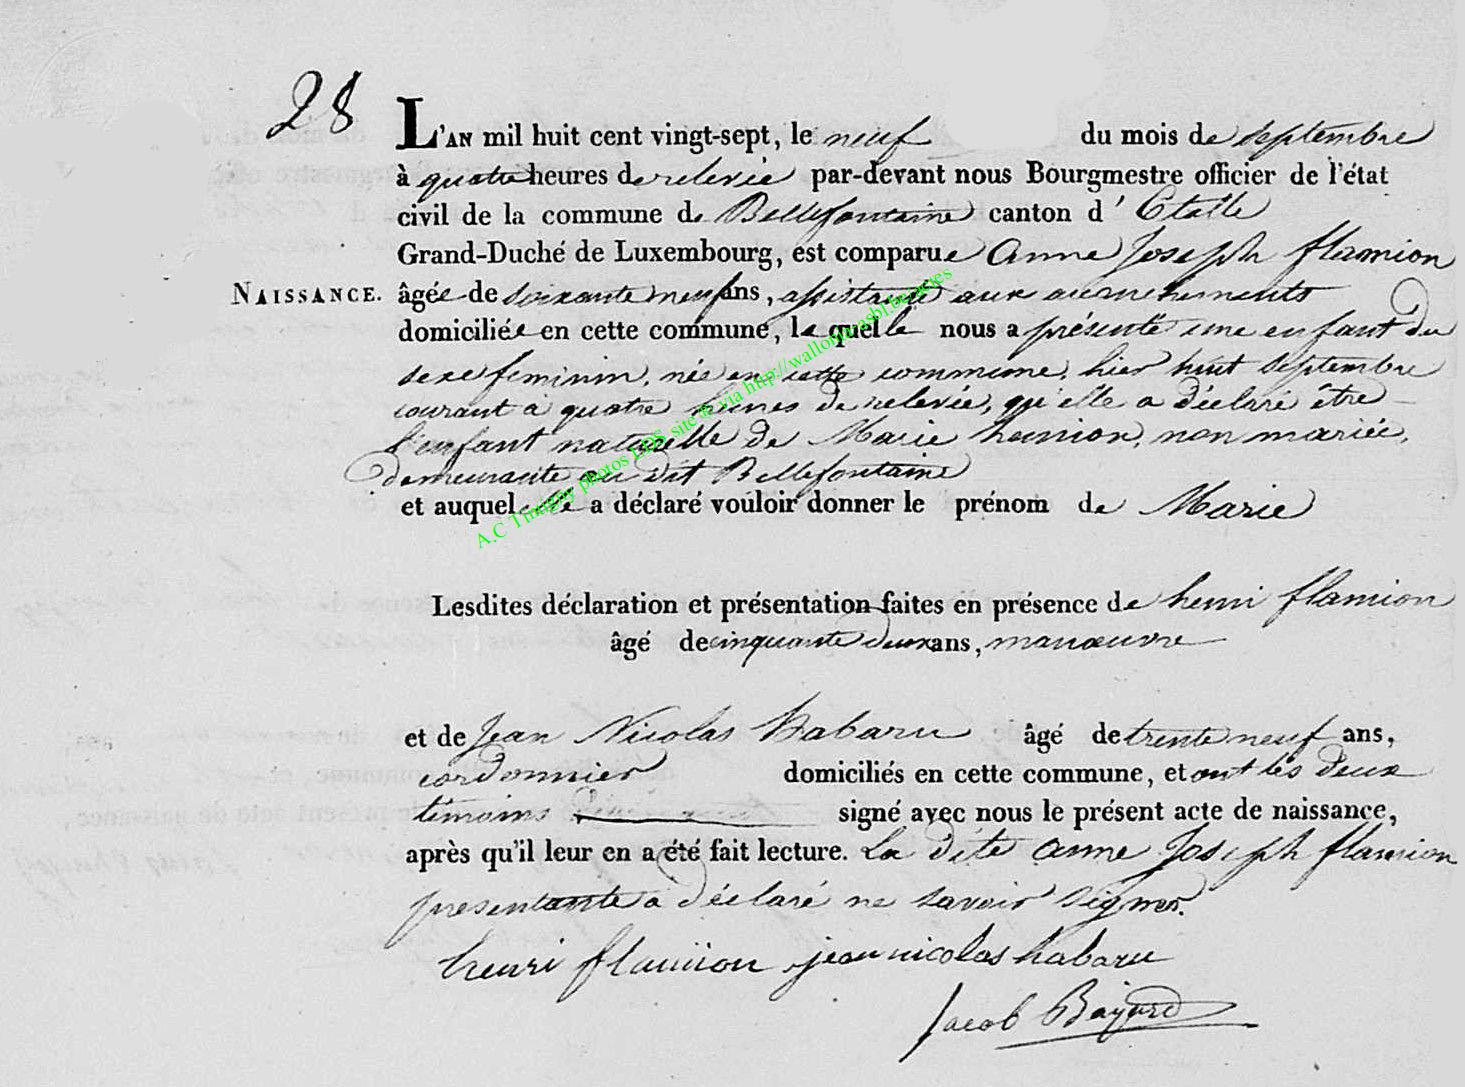 28
L'AN mil huit cent vingt-sept, le neuf du mois de septembre
à quatre heures de relevée par-devant nous Bourgmestre officier de l'état
civil de la commune de Bellefontaine canton d' Etalle
Grand-Duché de Luxembourg, est comparue Anne Joseph flamion
NAISSANCE. âgée de soixante neuf ans, assistante aux accouchements
domiciliée en cette commune, laquelle nous a présenté une enfant du
sexe feminin, née en cette commune, hier huit septembre
courant à quatre heures de relevée, qu'elle a déclaré être
l'enfant naturelle de Marie henrion, non mariée,
demeurante au dit Bellefontaine
et auquel elle a déclaré vouloir donner le prénom de Marie
A.C Tintigny photos LDS, site & via http://wallonia-asbl.be/actes
Lesdites déclaration et présentation faites en présence de henri flamion
âgé de cinquante deux ans, manœuvre
et de Jean Nicolas habaru âgé de trente neuf ans,
cordonnier domiciliés en cette commune, et ont les deux
témoins signé avec nous le présent acte de naissance,
après qu'il leur en a été fait lecture. La dite anne Joseph flamion
presentante a déclaré ne savoir signer.
henri flamiion jean nicolas habaru
Jacob Bayard